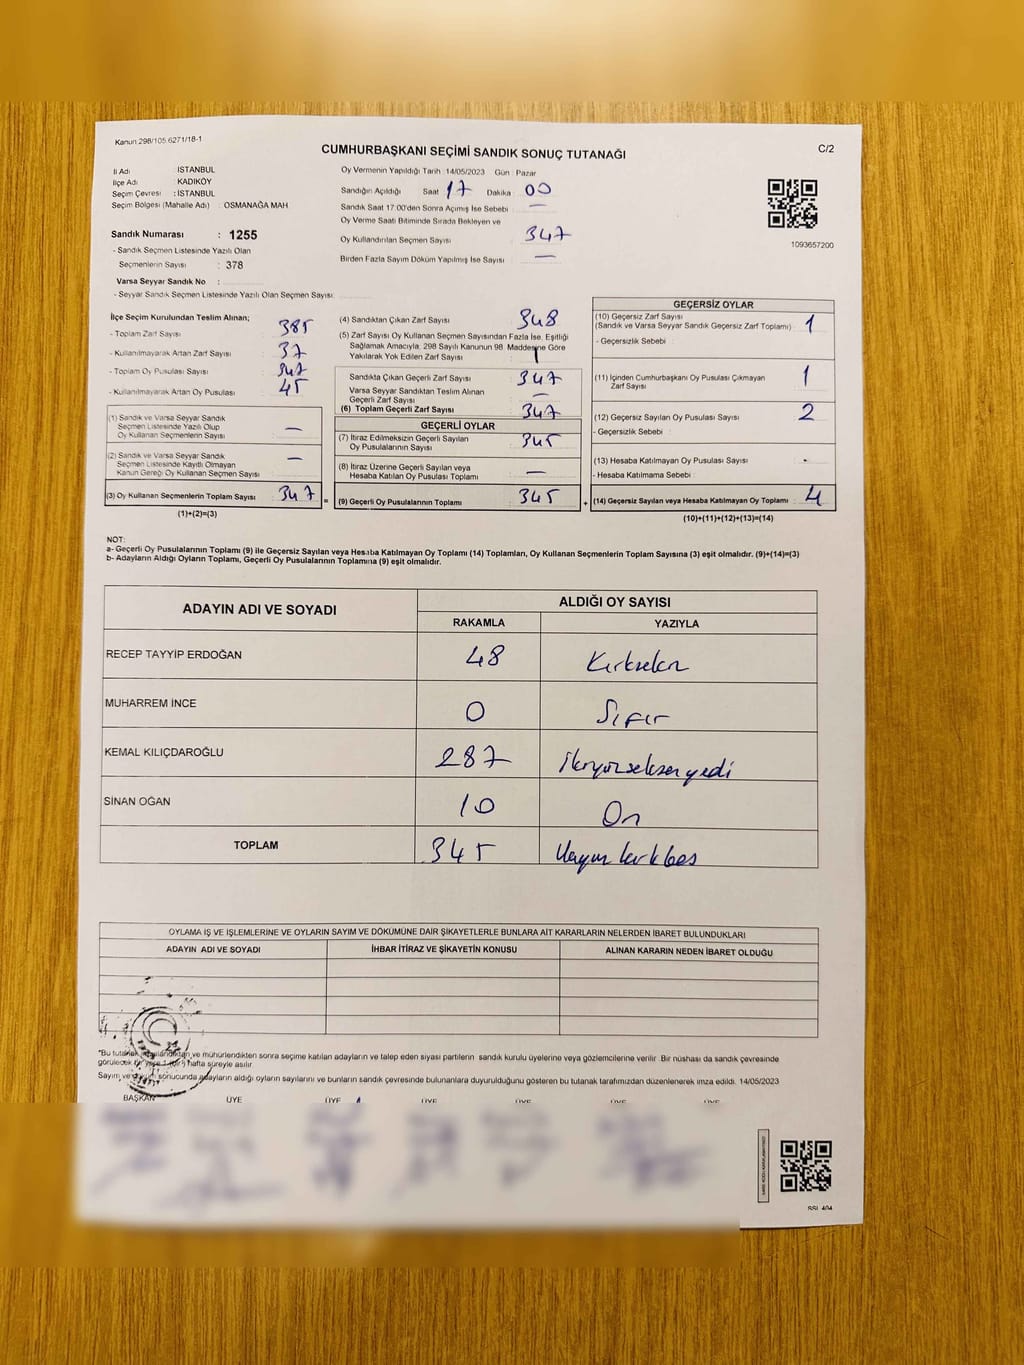 Kanun:298/105 6271/18-1
CUMHURBAŞKANI SEÇİMİ SANDIK SONUÇ TUTANAĞI
C/2
İl Adı : İSTANBUL
İlçe Adı : KADIKÖY
Seçim Çevresi : İSTANBUL
Seçim Bölgesi (Mahalle Adı) : OSMANAĞA MAH
Sandık Numarası : 1255
- Sandık Seçmen Listesinde Yazılı Olan
Seçmenlerin Sayısı : 378
Varsa Seyyar Sandık No :
- Seyyar Sandık Seçmen Listesinde Yazılı Olan Seçmen Sayısı:
Oy Vermenin Yapıldığı Tarih :14/05/2023 Gün : Pazar
Sandığın Açıldığı Saat 17 Dakika : 00
Sandık Saat 17:00'den Sonra Açımış İse Sebebi : —
Oy Verme Saati Bitiminde Sırada Bekleyen ve
Oy Kullandırılan Seçmen Sayısı : 347
Birden Fazla Sayım Döküm Yapılmış İse Sayısı : —
1093657200
İlçe Seçim Kurulundan Teslim Alınan;
- Toplam Zarf Sayısı : 385
- Kullanılmayarak Artan Zarf Sayısı : 37
- Toplam Oy Pusulası Sayısı : 347
- Kullanılmayarak Artan Oy Pusulası : 45
(1) Sandık ve Varsa Seyyar Sandık
Seçmen Listesinde Yazılı Olup
Oy Kullanan Seçmenlerin Sayısı : —
(2) Sandık ve Varsa Seyyar Sandık
Seçmen Listesinde Kayıtlı Olmayan
Kanun Gereği Oy Kullanan Seçmen Sayısı : —
(3) Oy Kullanan Seçmenlerin Toplam Sayısı : 347 =
(1)+(2)=(3)
(4) Sandıktan Çıkan Zarf Sayısı : 348
(5) Zarf Sayısı Oy Kullanan Seçmen Sayısından Fazla İse, Eşitliği
Sağlamak Amacıyla, 298 Sayılı Kanunun 98. Maddesine Göre
Yakılarak Yok Edilen Zarf Sayısı : 1
Sandıkta Çıkan Geçerli Zarf Sayısı : 347
Varsa Seyyar Sandıktan Teslim Alınan
Geçerli Zarf Sayısı : —
(6) Toplam Geçerli Zarf Sayısı : 347
GEÇERLİ OYLAR
(7) İtiraz Edilmeksizin Geçerli Sayılan
Oy Pusulalarının Sayısı : 345
(8) İtiraz Üzerine Geçerli Sayılan veya
Hesaba Katılan Oy Pusulası Toplamı : —
(9) Geçerli Oy Pusulalarının Toplamı : 345 +
GEÇERSİZ OYLAR
(10) Geçersiz Zarf Sayısı
(Sandık ve Varsa Seyyar Sandık Geçersiz Zarf Toplamı) : 1
- Geçersizlik Sebebi :
(11) İçinden Cumhurbaşkanı Oy Pusulası Çıkmayan
Zarf Sayısı : 1
(12) Geçersiz Sayılan Oy Pusulası Sayısı : 2
- Geçersizlik Sebebi :
(13) Hesaba Katılmayan Oy Pusulası Sayısı : -
- Hesaba Katılmama Sebebi :
(14) Geçersiz Sayılan veya Hesaba Katılmayan Oy Toplamı : 4
(10)+(11)+(12)+(13)=(14)
NOT:
a- Geçerli Oy Pusulalarının Toplamı (9) ile Geçersiz Sayılan veya Hesaba Katılmayan Oy Toplamı (14) Toplamları, Oy Kullanan Seçmenlerin Toplam Sayısına (3) eşit olmalıdır. (9)+(14)=(3)
b- Adayların Aldığı Oyların Toplamı, Geçerli Oy Pusulalarının Toplamına (9) eşit olmalıdır.
ADAYIN ADI VE SOYADI
ALDIĞI OY SAYISI
RAKAMLA
YAZIYLA
RECEP TAYYİP ERDOĞAN 48 Kırksekiz
MUHARREM İNCE 0 Sıfır
KEMAL KILIÇDAROĞLU 287 ikiyüzseksenyedi
SİNAN OĞAN 10 On
TOPLAM 345 Üçyüz kırkbeş
OYLAMA İŞ VE İŞLEMLERİNE VE OYLARIN SAYIM VE DÖKÜMÜNE DAİR ŞİKAYETLERLE BUNLARA AİT KARARLARIN NELERDEN İBARET BULUNDUKLARI
ADAYIN ADI VE SOYADI
İHBAR İTİRAZ VE ŞİKAYETİN KONUSU
ALINAN KARARIN NEDEN İBARET OLDUĞU
"Bu tutanak ve mühürlendikten sonra seçime katılan adayların ve talep eden siyasi partilerin sandık kurulu üyelerine veya gözlemcilerine verilir. Bir nüshası da sandık çevresinde
görülecek hafta süreyle asılır.
Sayım ve döküm sonucunda adayların aldığı oyların sayılarını ve bunların sandık çevresinde bulunanlara duyurulduğunu gösteren bu tutanak tarafımızdan düzenlenerek imza edildi. 14/05/2023
BAŞKAN ÜYE ÜYE ÜYE ÜYE ÜYE ÜYE